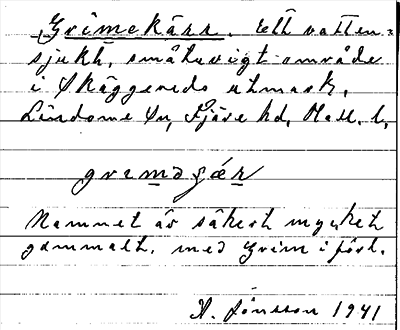 Grimekärr. Ett vatten=
sjukt, småtuvigt område
i Skäggereds utmark,
Lindome sn, Fjäre hd, Hall. l,
gremǝçǽr
Namnet är säkert mycket
gammalt. med Grim i förl.
A. Jönsson 1941